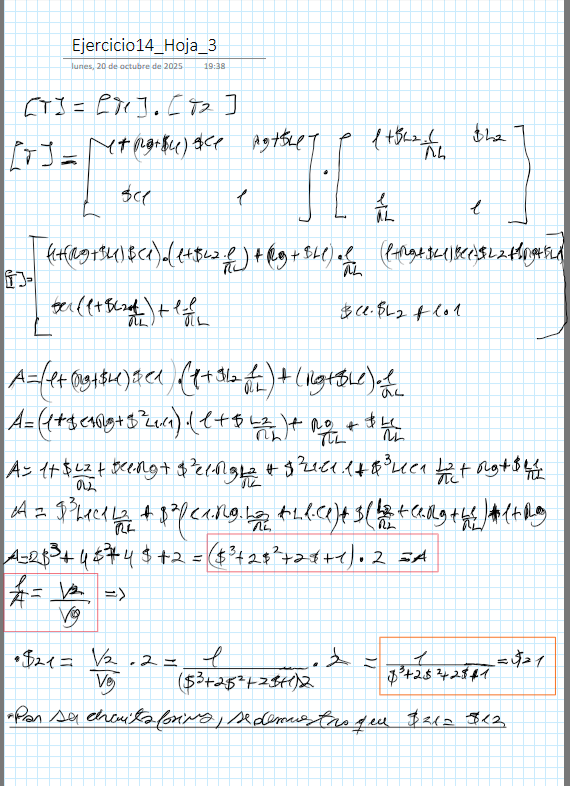 Ejercicio14_Hoja_3
lunes, 20 de octubre de 2025 19:38
[T] = [T1] . [T2]
[T] = [ 1+(Rg+$L1)$C1 Rg+$L1 ] . [ 1+$L2·1/RL $L2 ]
$C1 1 1/RL 1
[T]= [ (1+(Rg+$L1)$C1)·(1+$L2·1/RL)+(Rg+$L1)·1/RL (1+Rg+$L1)$C1·$L2+Rg+$L1
$C1(1+$L2·1/RL)+1·1/RL $C1·$L2+1·1 ]
A=(1+(Rg+$L1)$C1)·(1+$L2 1/RL)+(Rg+$L1)·1/RL
A=(1+$C1·Rg+$²L1C1)·(1+$ L2/RL)+ Rg/RL + $ L1/RL
A= 1+$ L2/RL + $C1·Rg + $²C1·Rg L2/RL + $²L1·C1·1+$³L1C1 L2/RL + Rg+$ L1/RL
A = $³L1C1 L2/RL + $²(C1·Rg·L2/RL + L1·C1)+$(L2/RL+C1·Rg+L1/RL)+1+Rg
A=2$³+4$²+4$+2 = ($³+2$²+2$+1)·2 =A
1/A = V2/Vg =>
·$21 = V2/Vg · 2 = 1/($³+2$²+2$+1)2 · 2 = 1/$³+2$²+2$+1 =$21
·Por ser circuito pasivo, se demuestra que $21= $12